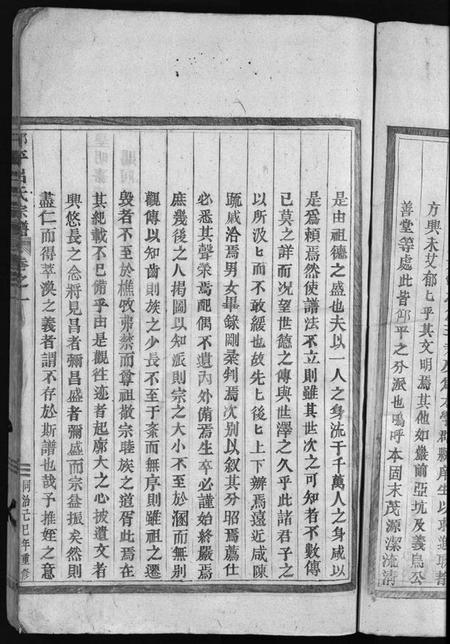 方興未艾郁匕乎其文明焉其他如巖前亞坑及義烏公
善堂等處此皆邻平之分派也嗚呼本固末茂源潔流清
是由祖德之盛也夫以一人之身流于千萬人之身咸以
是為賴焉然使譜法不立則雖其世次之可知者不數傳
已莫之詳而况望世德之傳與世澤之久乎此諸君子之
以所汲匕而不敢緩也故先匕後匕上下辨焉遠近咸陳
疏戚洽焉男女畢錄剛柔判焉次别以叙其分昭焉薦仕
必悉其聲榮焉配偶不遺内外備焉生卒必謹始終嚴焉
庶幾後之人揭圖以知派則宗之大小不至於溷而無别
觀傳以知齒則族之少長不至于紊而無序則雖祖之遷
毁者不至於樵牧弗禁而尊祖敬宗睦族之道胥此焉在
其紀載不已備乎由是觀往迹者起廓大之心披遺文者
興悠長之念將見昌者彌昌盛者彌盛而宗益振矣然則
盡仁而得萃渙之義者謂不存於斯譜也哉予推姪之意
平呂氏宗譜
卷之一
同治己巳年重修